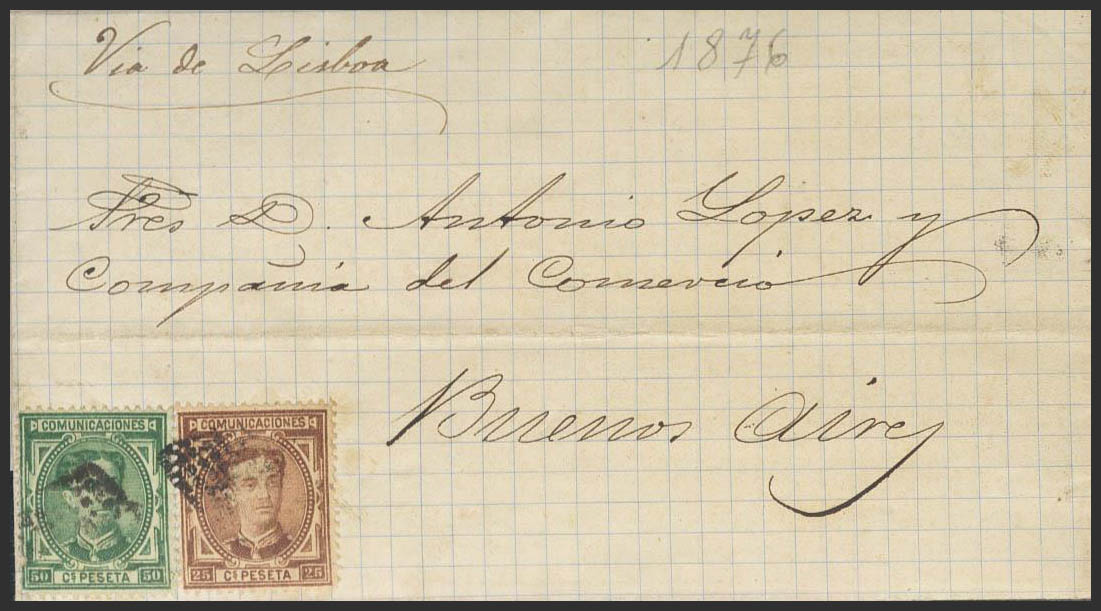 Via de Lisboa
1876
Sres D. Antonio Lopez y
Compañia del Comercio
Buenos Aires
COMUNICACIONES
50 Cs PESETA 50
COMUNICACIONES
25 Cs PESETA 25